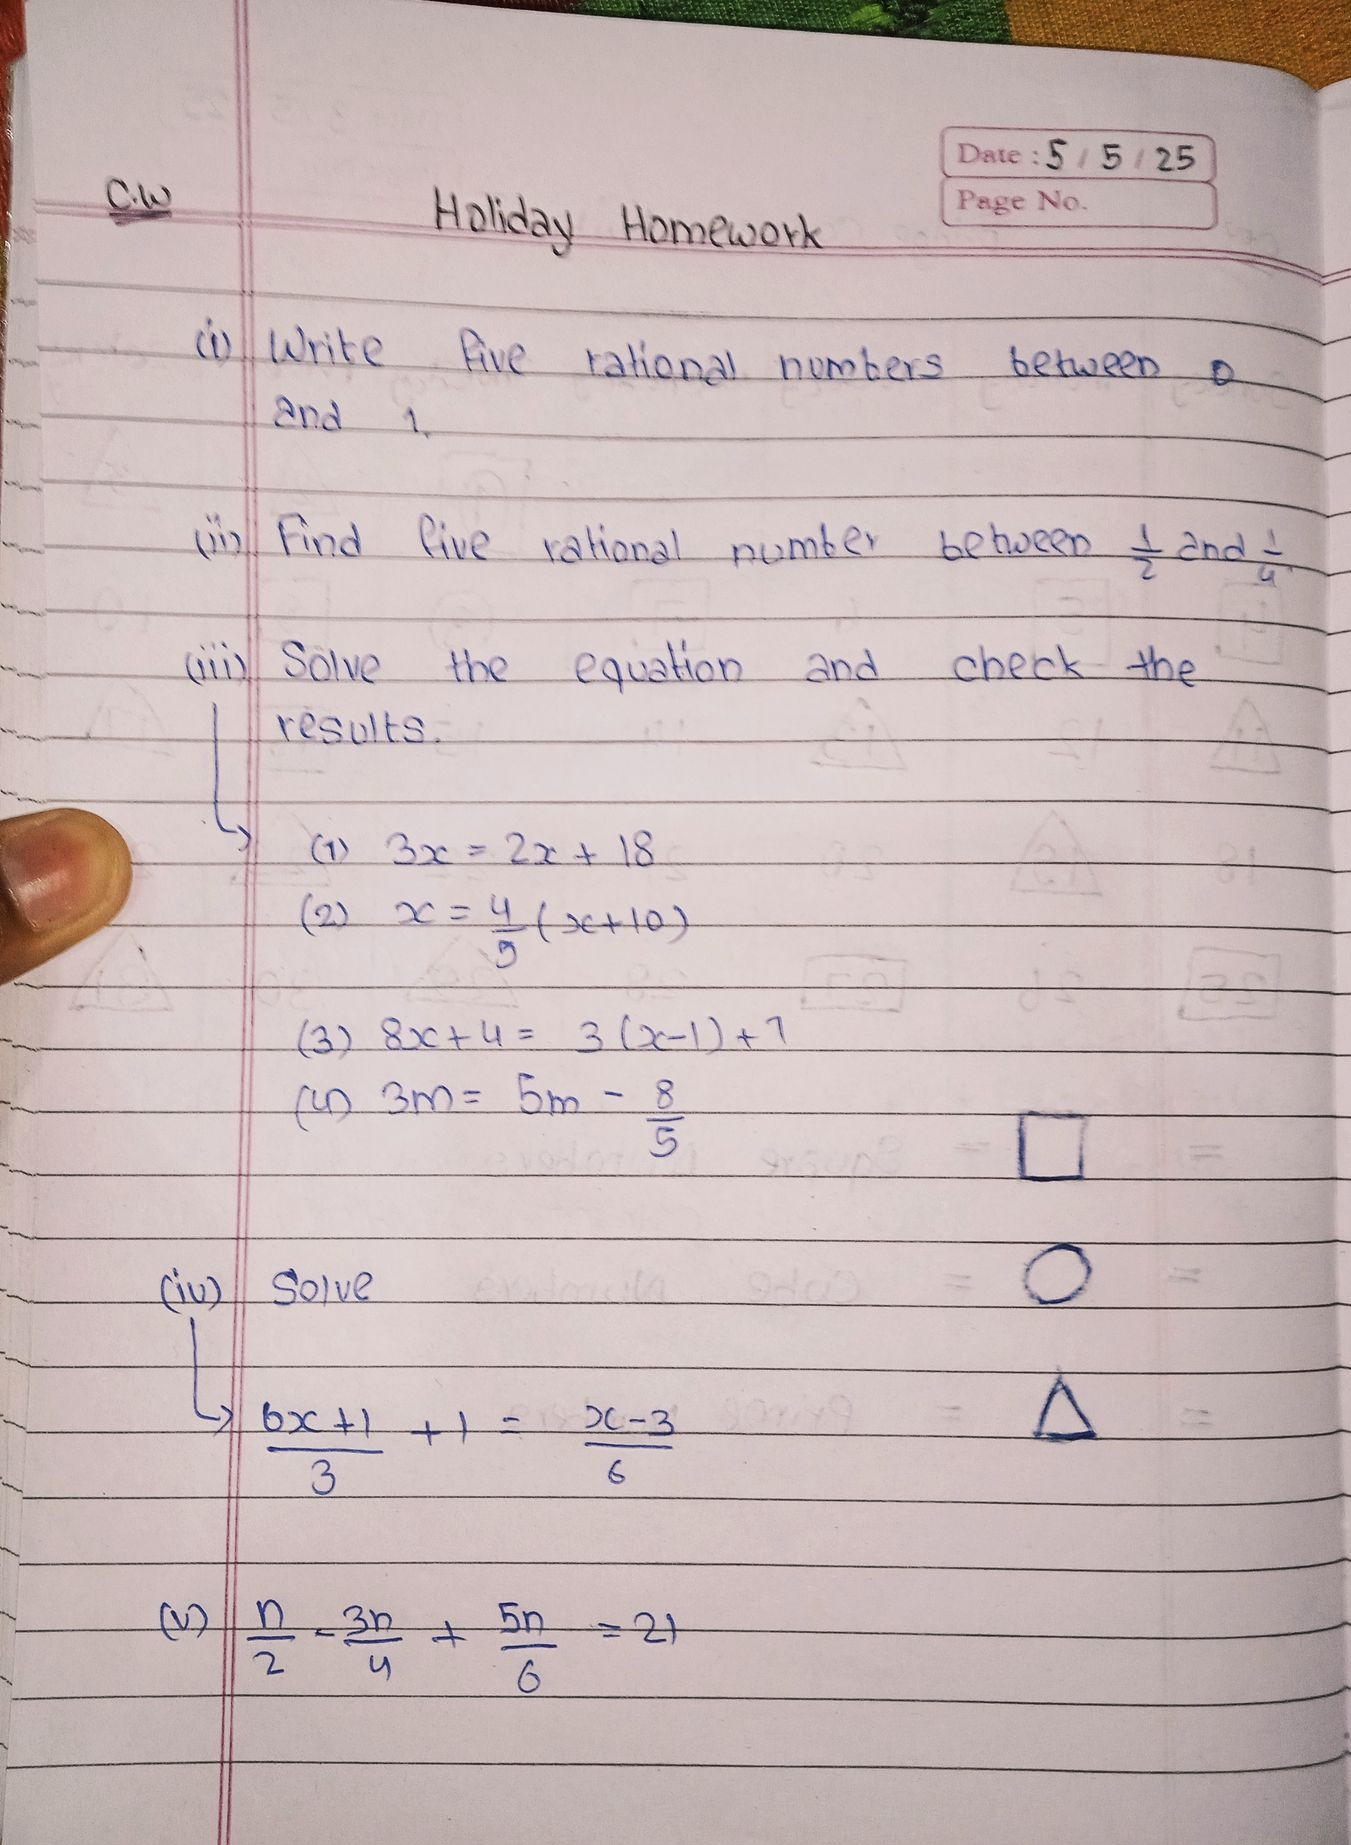 Date : 5 / 5 / 25
Page No.
C.W
Holiday Homework
(i) Write five rational numbers between 0
and 1.
(ii) Find five rational number between 1/2 and 1/4.
(iii) Solve the equation and check the
results.
(1) 3x = 2x + 18
(2) x = 4/5 (x+10)
(3) 8x + 4 = 3 (x-1) + 7
(4) 3m = 5m - 8/5
(iv) Solve
6x+1/3 + 1 = x-3/6
(v) n/2 - 3n/4 + 5n/6 = 21